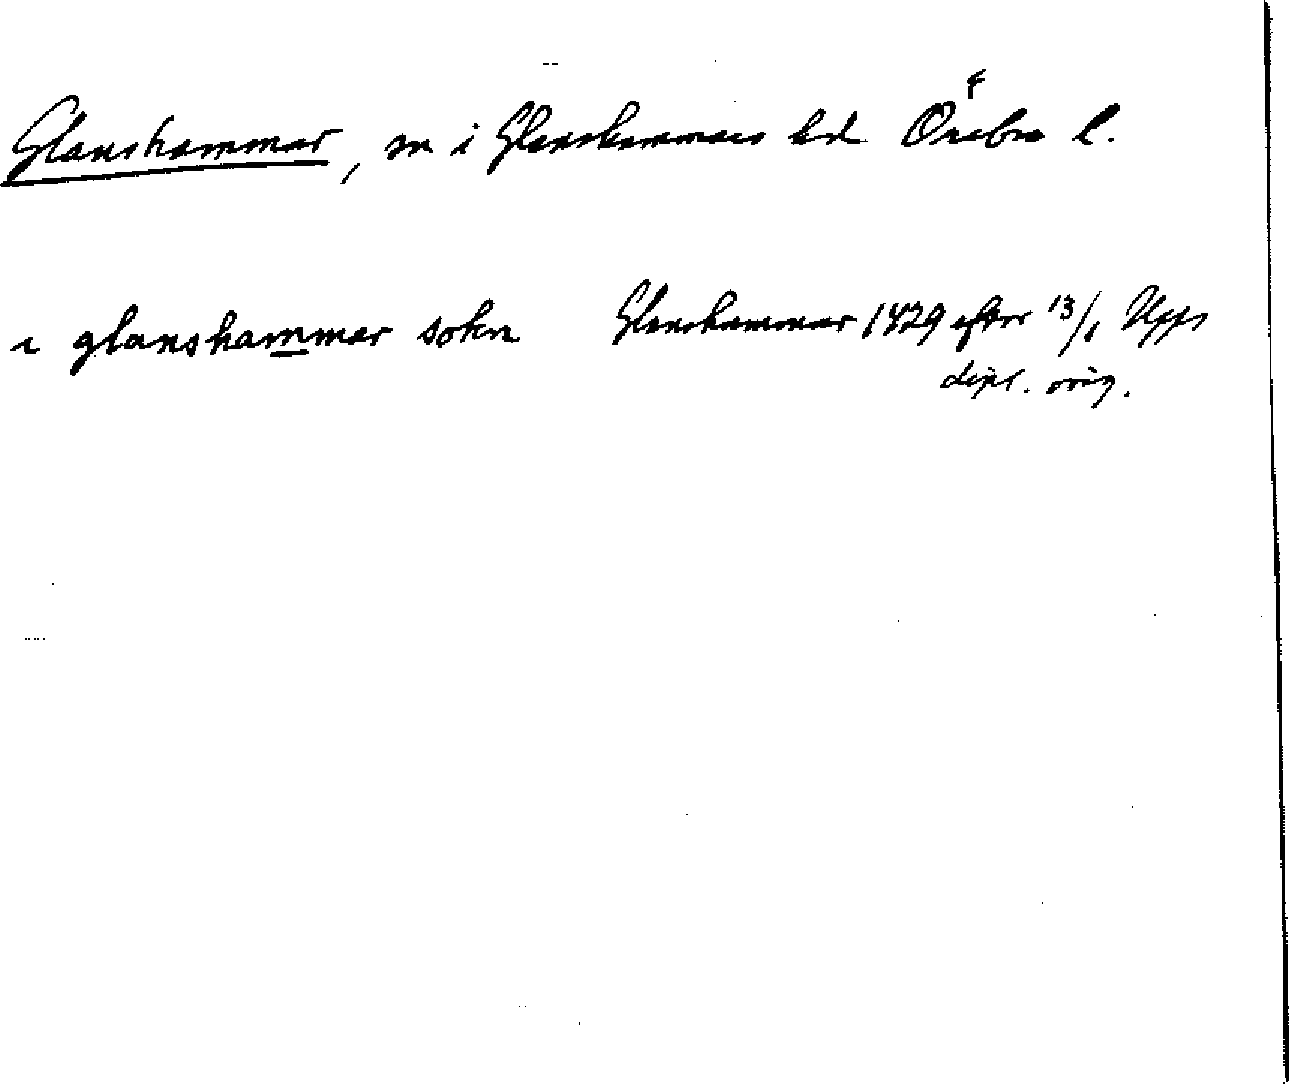 Glanshammar, sn i Glanshammars hd Örebro l.
i glanshammar sokn Glanshammar 1429 efter 13/1 Upps
dipl. orig.